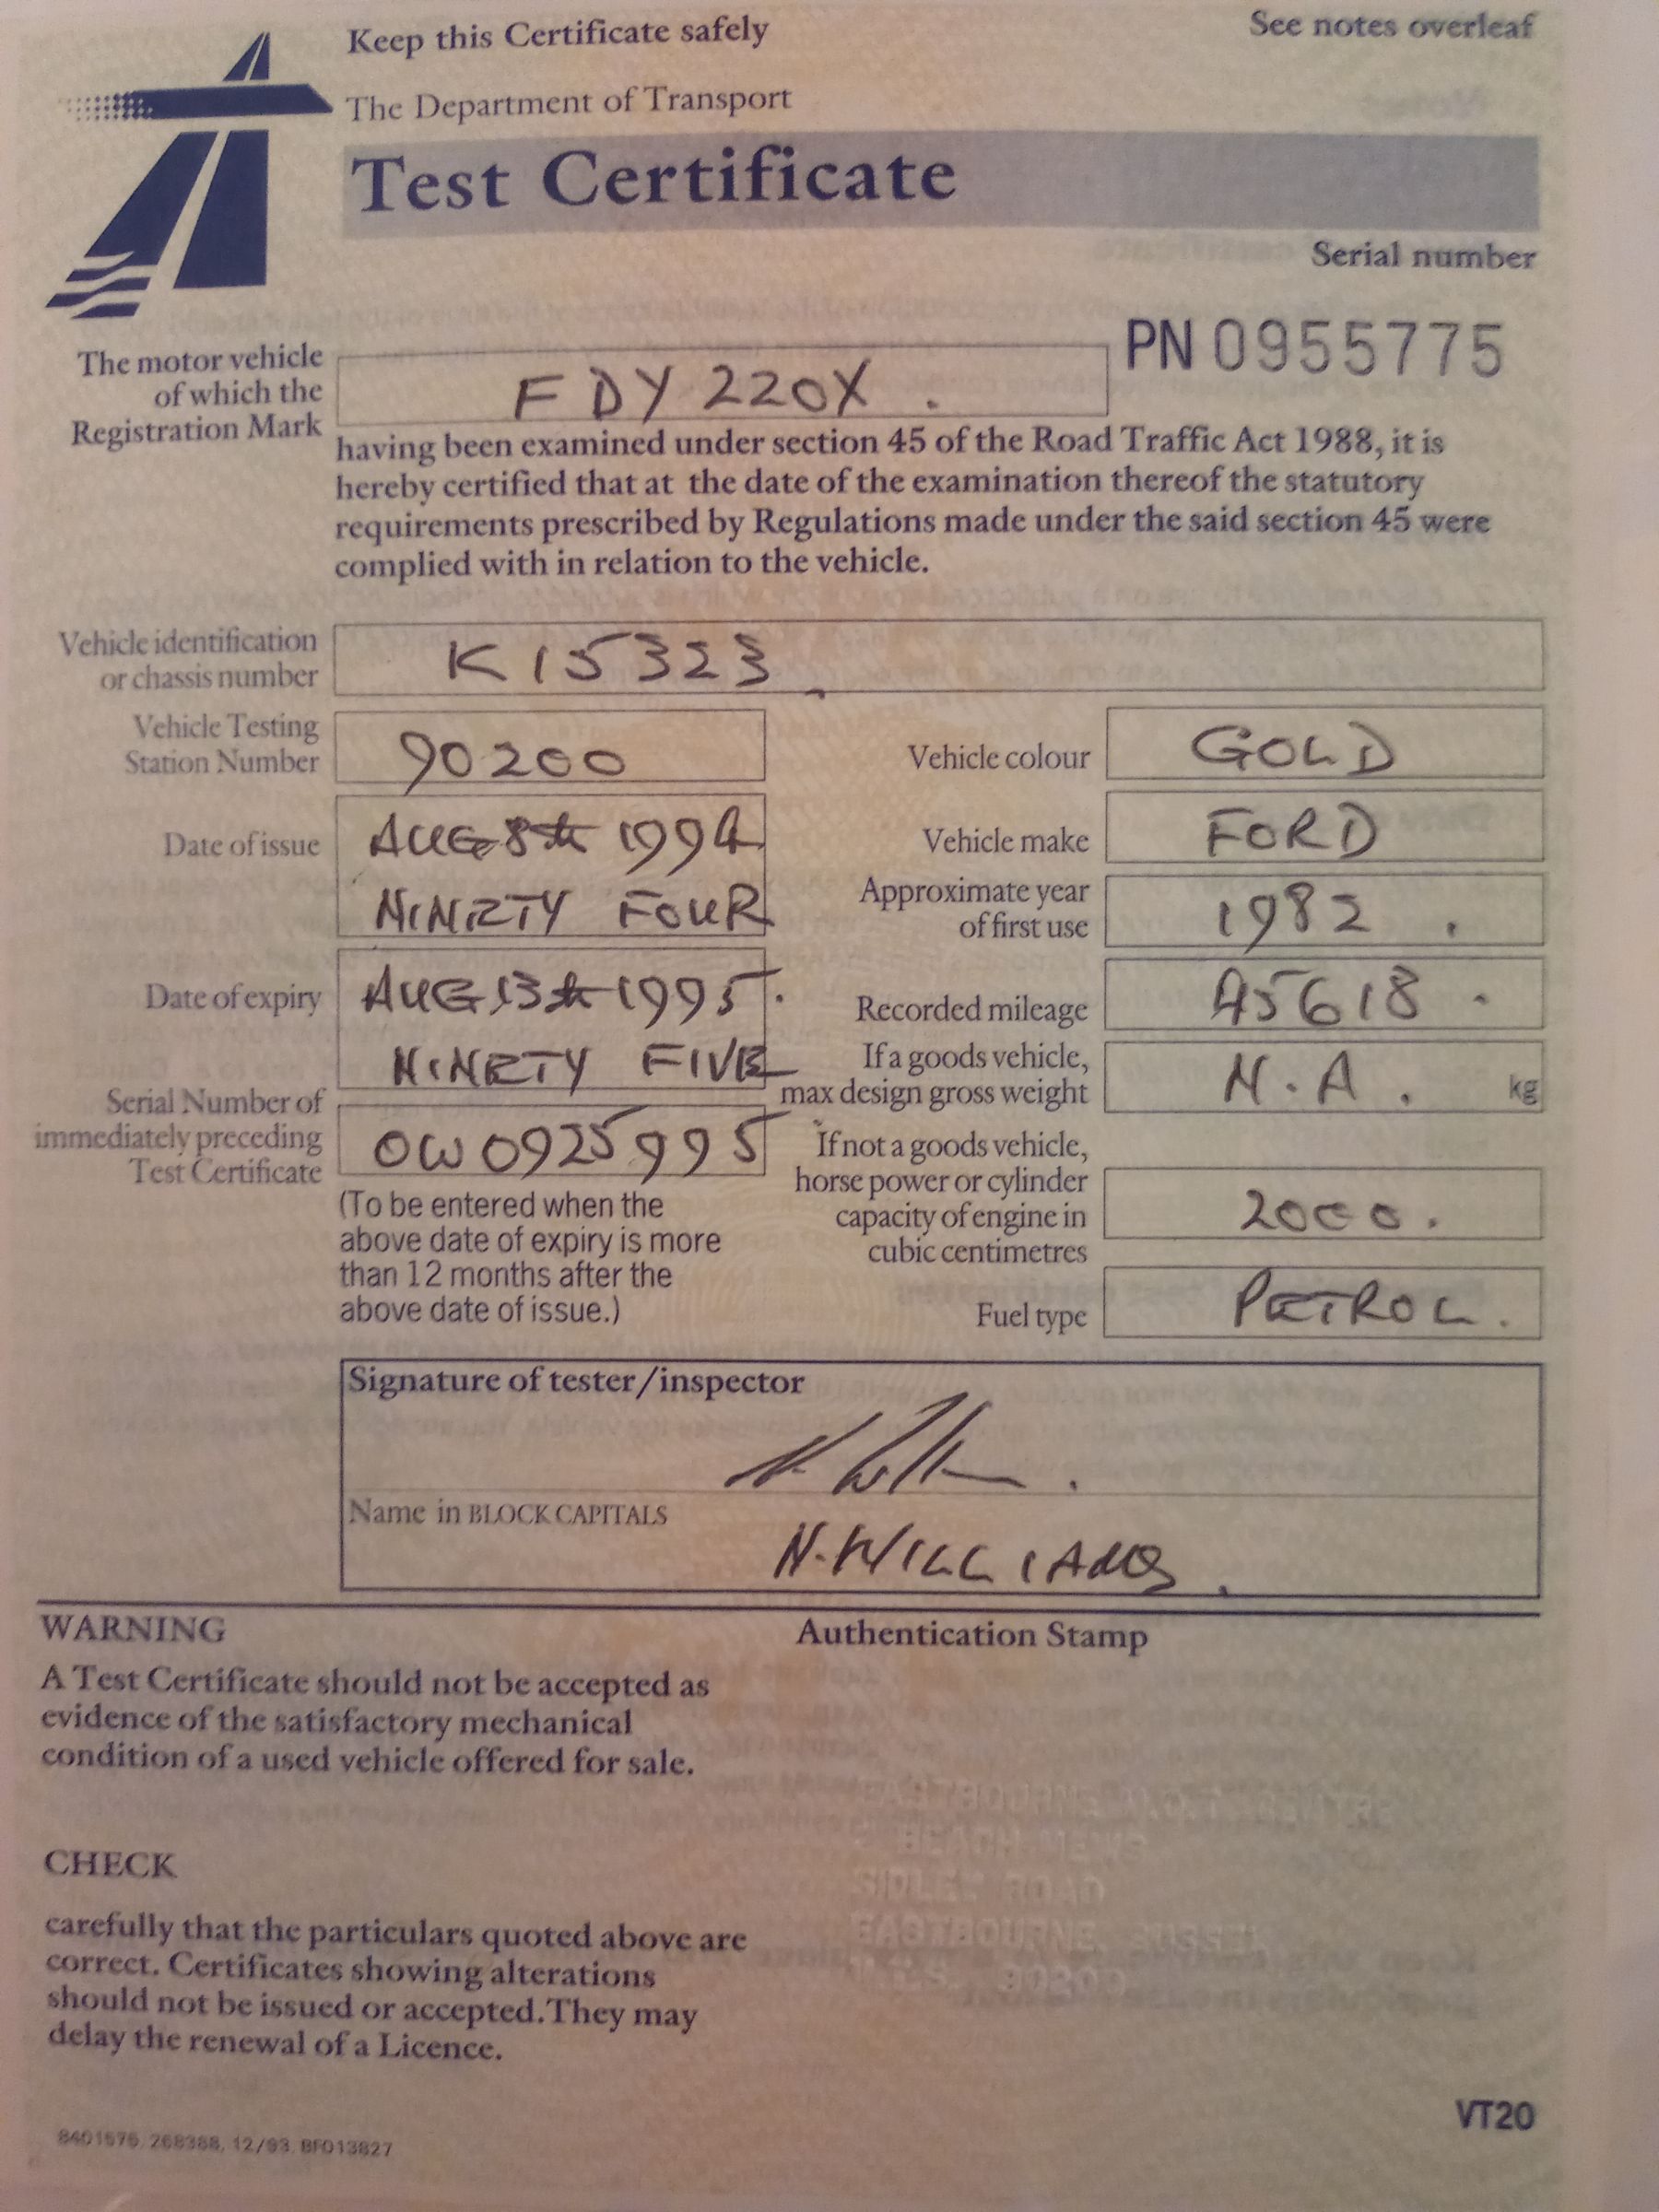 Keep this Certificate safely
See notes overleaf
The Department of Transport
Test Certificate
Serial number
PN 0955775
The motor vehicle
of which the
Registration Mark
FDY 220X.
having been examined under section 45 of the Road Traffic Act 1988, it is
hereby certified that at the date of the examination thereof the statutory
requirements prescribed by Regulations made under the said section 45 were
complied with in relation to the vehicle.
Vehicle identification
or chassis number
K15323.
Vehicle Testing
Station Number
90200
Vehicle colour
GOLD
Date of issue
AUG 8th 1994
NINETY FOUR
Vehicle make
FORD
Approximate year
of first use
1982.
Date of expiry
AUG 13th 1995.
NINETY FIVE
Recorded mileage
45618.
If a goods vehicle,
max design gross weight
N.A. kg
Serial Number of
immediately preceding
Test Certificate
OW 0925995
(To be entered when the
above date of expiry is more
than 12 months after the
above date of issue.)
If not a goods vehicle,
horse power or cylinder
capacity of engine in
cubic centimetres
2000.
Fuel type
PETROL.
Signature of tester/inspector
Name in BLOCK CAPITALS
N. WILLIAMS.
WARNING
A Test Certificate should not be accepted as
evidence of the satisfactory mechanical
condition of a used vehicle offered for sale.
Authentication Stamp
EASTBOURNE M.O.T. CENTRE
BEACH MEWS
ROAD
EASTBOURNE SUSSEX
90200
CHECK
carefully that the particulars quoted above are
correct. Certificates showing alterations
should not be issued or accepted. They may
delay the renewal of a Licence.
VT20
8401676, 268368, 12/93, BFO13827